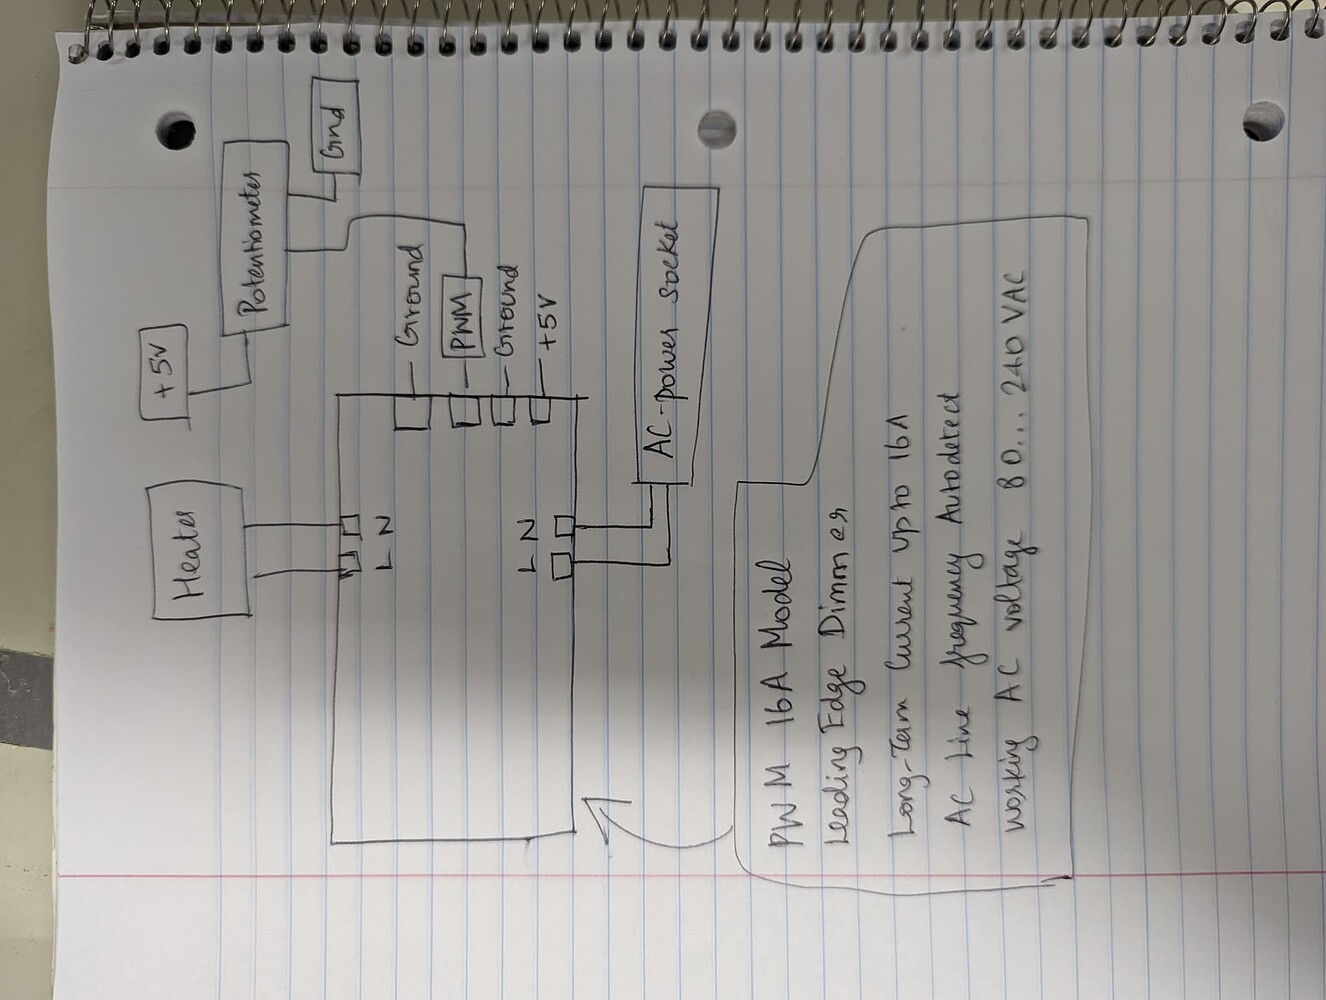 Heater
+5V
Potentiometer
Gnd
L N
Ground
PWM
Ground
+5V
L N
AC-power socket
PWM 16A Model
Leading Edge Dimmer
Long-Term Current upto 16A
AC Line frequency Autodetect
Working AC voltage 80... 240 VAC